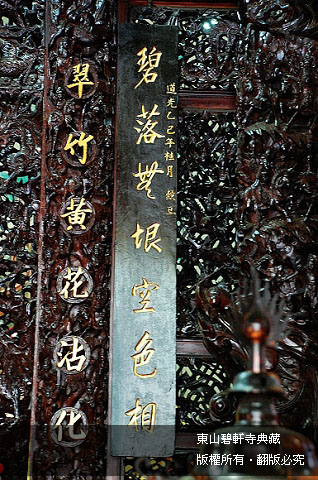 道光乙巳年桂月 穀旦
碧落無垠空色相
翠竹黃花沾化
東山碧軒寺典藏
版權所有・翻版必究